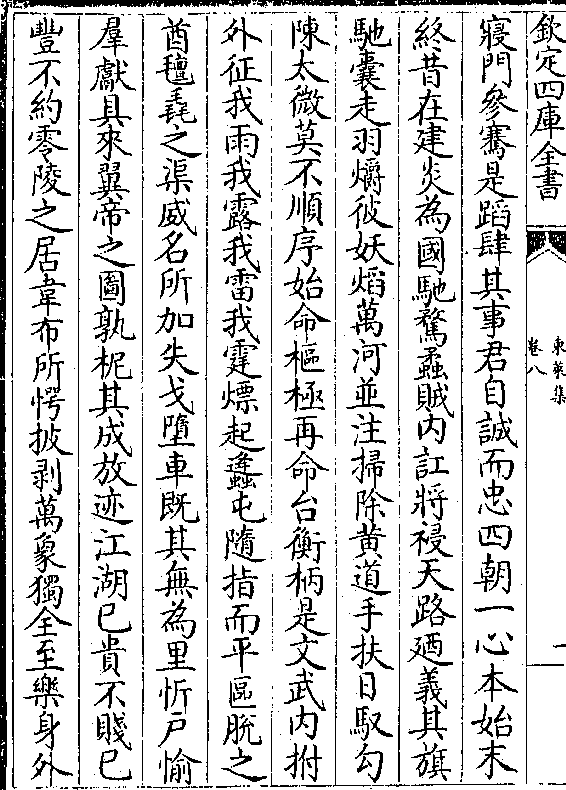 欽定四庫全書
東萊集
卷八
一
寢門參騫是蹈肆其事君自誠而忠四朝一心本始末
終昔在建炎為國馳騖蟊賊内訌將祲天路廼義其旗
馳囊走羽爝彼妖熖萬河並注掃除黄道手扶日馭勾
陳太微莫不順序始命樞極再命台衡柄是文武内拊
外征我雨我露我雷我霆熛起蠭屯隨指而平區脱之
酋氊毳之渠威名所加失戈墮車既其無為里忻戸愉
羣獻具來翼帝之圖孰柅其成放迹江湖已貴不賤已
豐不約零陵之居韋布所愕披剥萬象獨全至樂身外